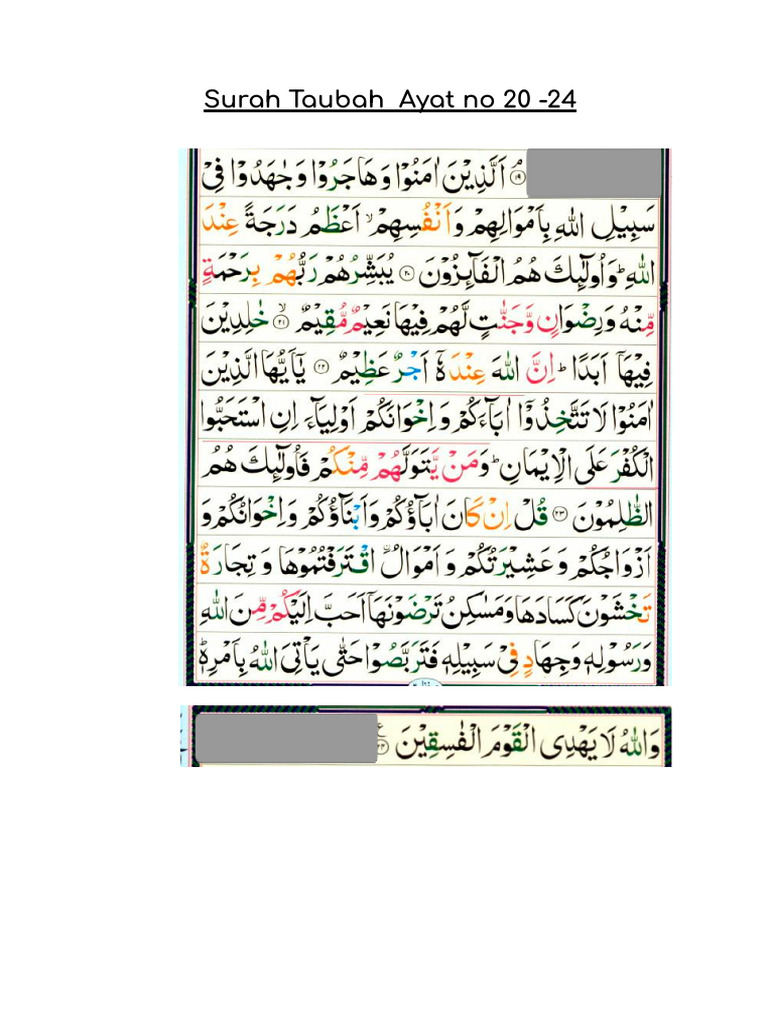 Surah Taubah Ayat no 20 -24
۝۱۹ اَلَّذِيْنَ اٰمَنُوْا وَهَاجَرُوْا وَجٰهَدُوْا فِيْ
سَبِيْلِ اللّٰهِ بِاَمْوَالِهِمْ وَاَنْفُسِهِمْ ۙ اَعْظَمُ دَرَجَةً عِنْدَ
اللّٰهِ ؕ وَاُولٰٓئِكَ هُمُ الْفَآئِزُوْنَ ۝۲۰ يُبَشِّرُهُمْ رَبُّهُمْ بِرَحْمَةٍ
مِّنْهُ وَرِضْوَانٍ وَّجَنّٰتٍ لَّهُمْ فِيْهَا نَعِيْمٌ مُّقِيْمٌ ۝۲۱ ۙ خٰلِدِيْنَ
فِيْهَاۤ اَبَدًا ؕ اِنَّ اللّٰهَ عِنْدَهٗۤ اَجْرٌ عَظِيْمٌ ۝۲۲ يٰۤاَيُّهَا الَّذِيْنَ
اٰمَنُوْا لَا تَتَّخِذُوْۤا اٰبَآءَكُمْ وَاِخْوَانَكُمْ اَوْلِيَآءَ اِنِ اسْتَحَبُّوا
الْكُفْرَ عَلَى الْاِيْمَانِ ؕ وَمَنْ يَّتَوَلَّهُمْ مِّنْكُمْ فَاُولٰٓئِكَ هُمُ
الظّٰلِمُوْنَ ۝۲۳ قُلْ اِنْ كَانَ اٰبَآؤُكُمْ وَاَبْنَآؤُكُمْ وَاِخْوَانُكُمْ وَ
اَزْوَاجُكُمْ وَعَشِيْرَتُكُمْ وَاَمْوَالُ ۨاقْتَرَفْتُمُوْهَا وَتِجَارَةٌ
تَخْشَوْنَ كَسَادَهَا وَمَسٰكِنُ تَرْضَوْنَهَاۤ اَحَبَّ اِلَيْكُمْ مِّنَ اللّٰهِ
وَرَسُوْلِهٖ وَجِهَادٍ فِيْ سَبِيْلِهٖ فَتَرَبَّصُوْا حَتّٰى يَاْتِيَ اللّٰهُ بِاَمْرِهٖ ؕ
وَاللّٰهُ لَا يَهْدِى الْقَوْمَ الْفٰسِقِيْنَ ۝۲۴